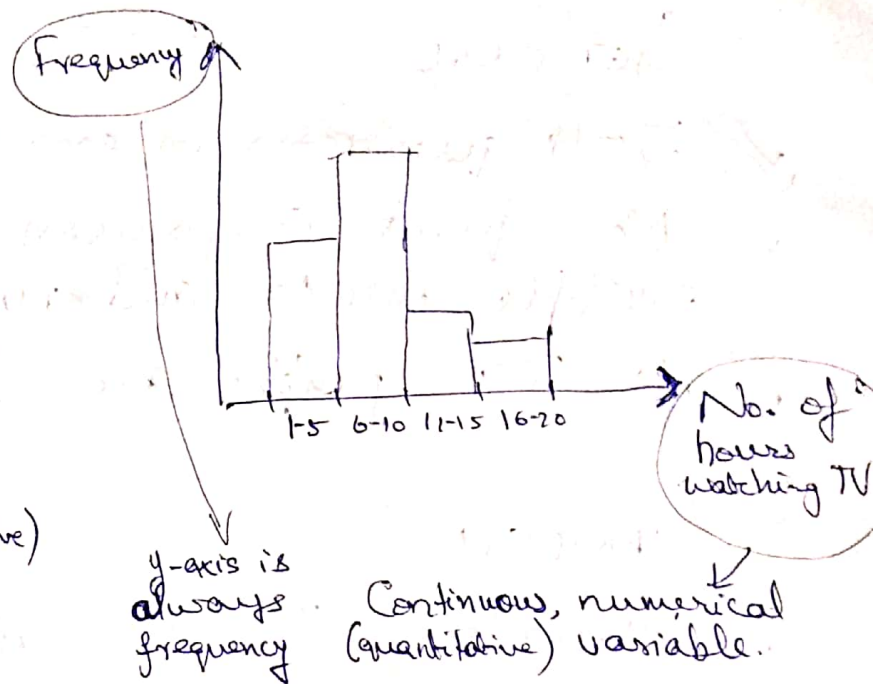 Frequency
1-5 6-10 11-15 16-20
No. of
hours
watching TV
ve)
y-axis is
always
frequency
Continuous, numerical
(quantitative) variable.